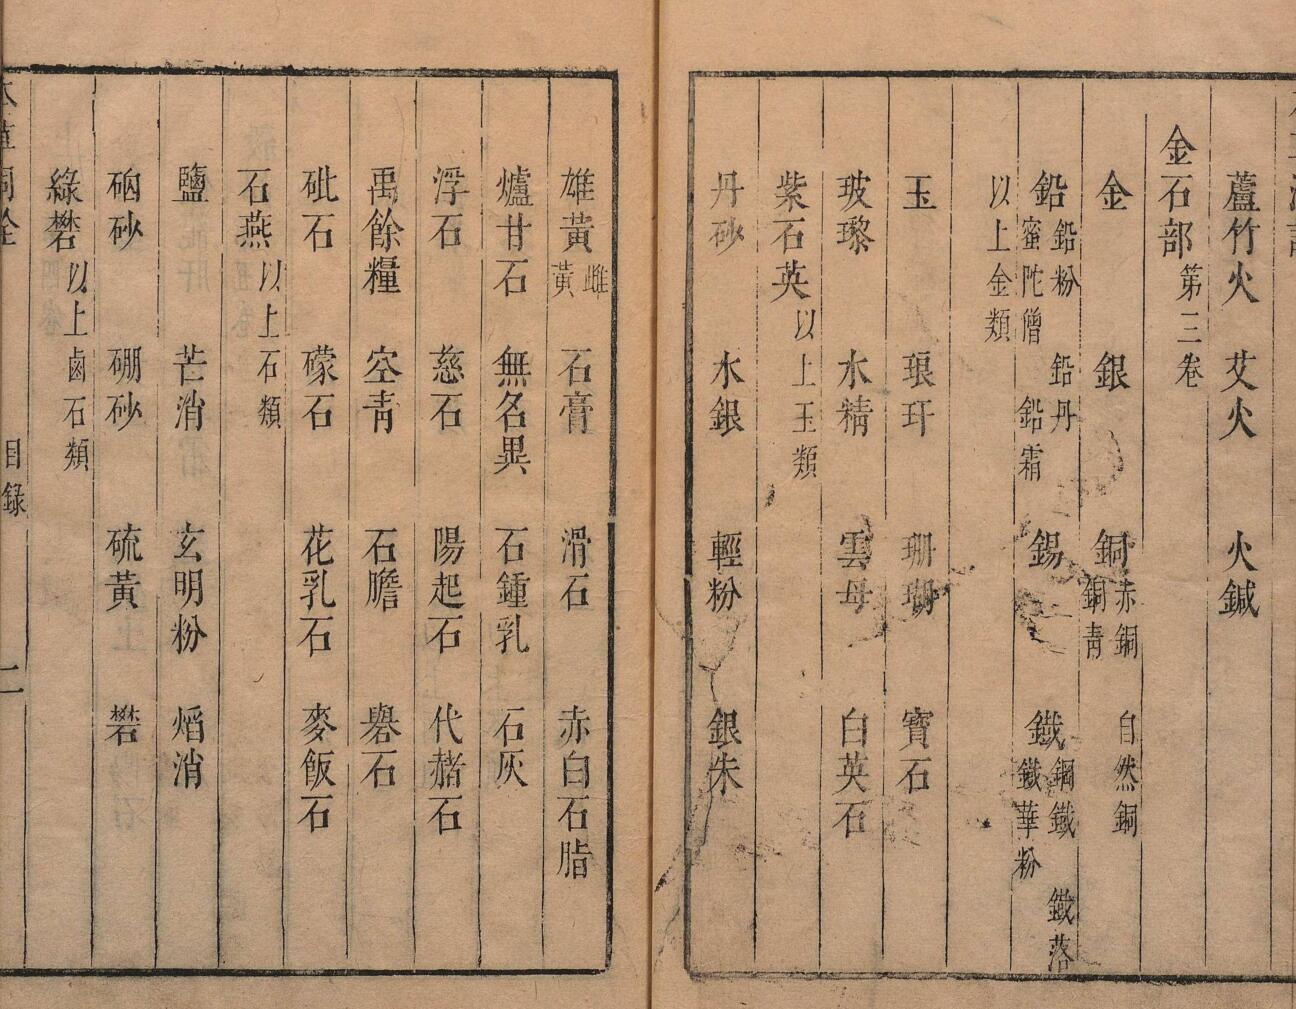 蘆竹火 艾火 火鍼
金石部 第三卷
金 銀 銅 赤銅 銅青 自然銅
鉛 鉛粉 蜜陀僧 鉛丹 鉛霜 錫 鐵 鋼鐵 鐵華粉 鐵落
以上金類
玉 琅玕 珊瑚 寶石
玻瓈 水精 雲母 白英石
紫石英 以上玉類
丹砂 水銀 輕粉 銀朱
雄黃 雌黃 石膏 滑石 赤白石脂
爐甘石 無名異 石鍾乳 石灰
浮石 慈石 陽起石 代赭石
禹餘糧 空青 石膽 礜石
砒石 礞石 花乳石 麥飯石
石燕 以上石類
鹽 芒消 玄明粉 熖消
硇砂 硼砂 硫黃 礬
綠礬 以上鹵石類
目錄 二